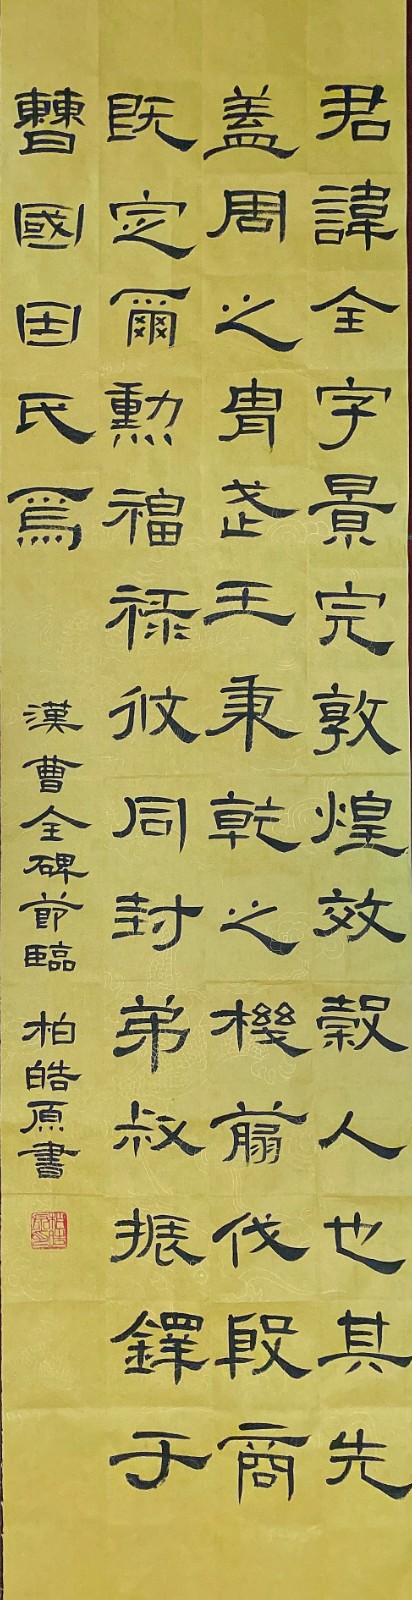 君諱全字景完敦煌效穀人也其先
蓋周之胄武王秉乾之機翦伐殷商
既定爾勳福祿攸同封弟叔振鐸于
曹國因氏焉
漢曹全碑節臨 柏皓原書